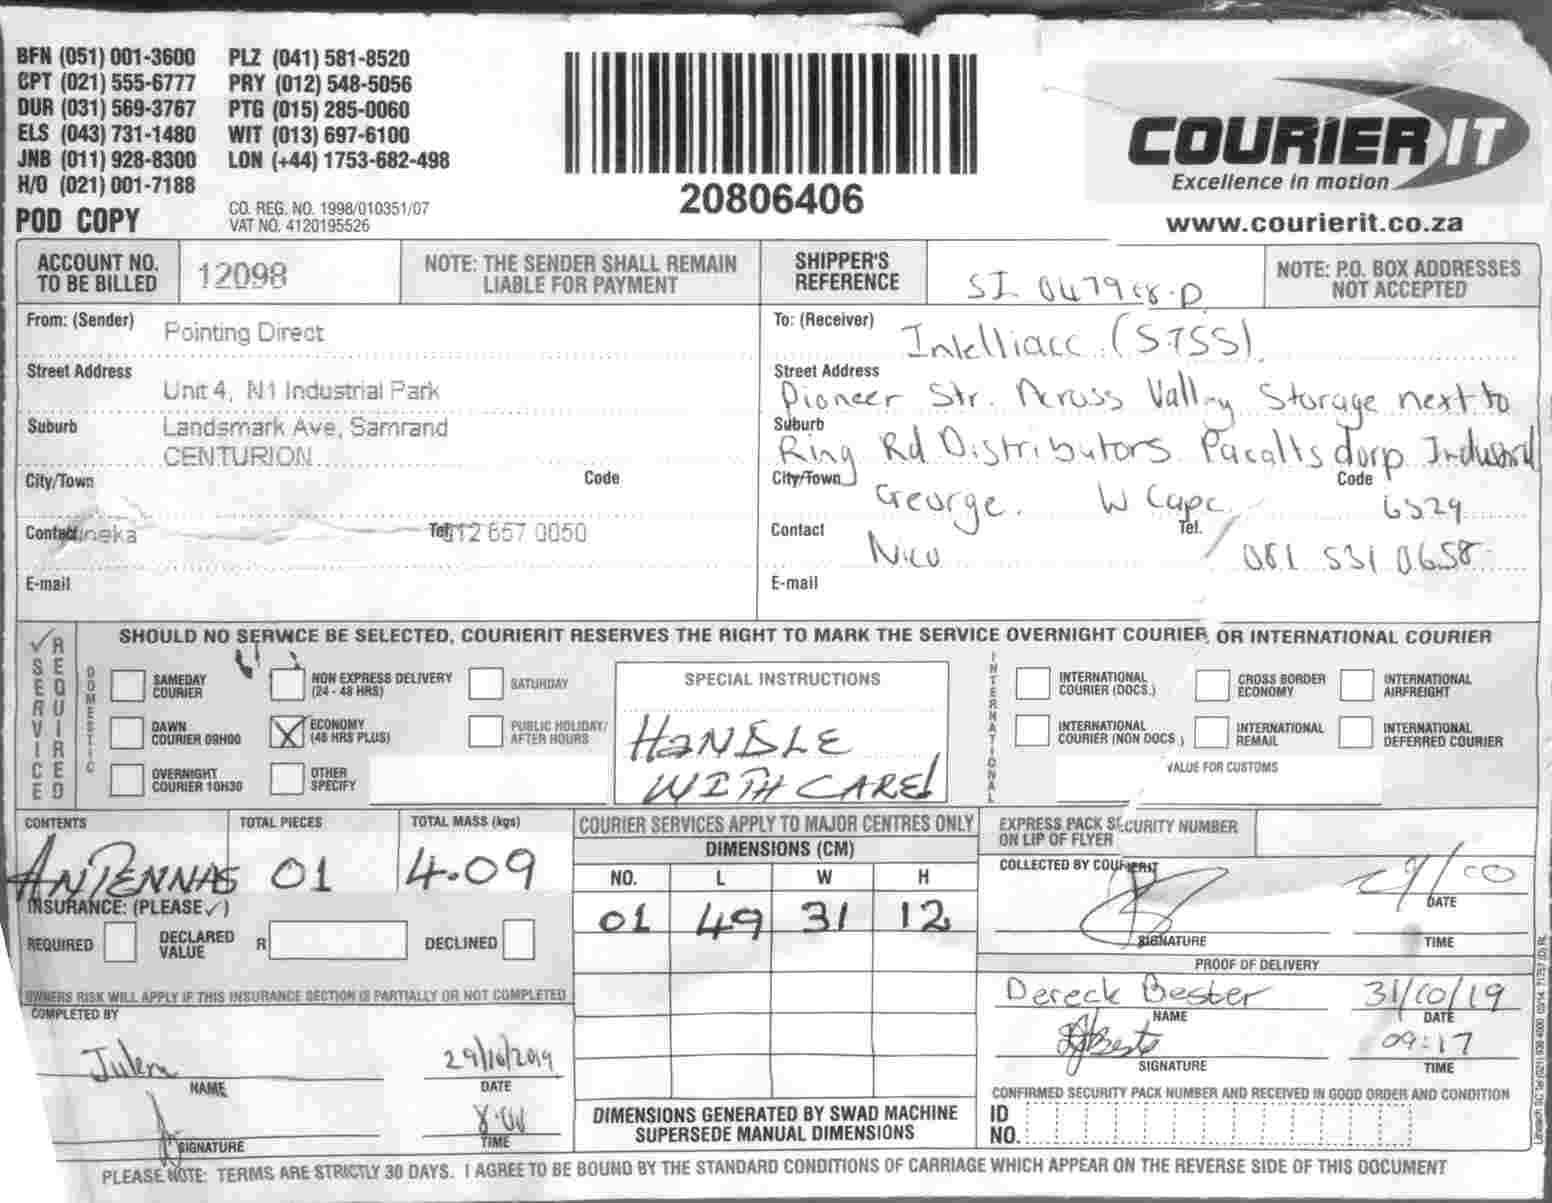 BFN (051) 001-3600 PLZ (041) 581-8520
CPT (021) 555-6777 PRY (012) 548-5056
DUR (031) 569-3767 PTG (015) 285-0060
ELS (043) 731-1480 WIT (013) 697-6100
JNB (011) 928-8300 LON (+44) 1753-682-498
H/O (021) 001-7188
POD COPY
CO. REG. NO. 1998/010351/07
VAT NO. 4120195526
20806406
COURIER IT
Excellence in motion
www.courierit.co.za
ACCOUNT NO. TO BE BILLED 12098
NOTE: THE SENDER SHALL REMAIN LIABLE FOR PAYMENT
SHIPPER'S REFERENCE SI
NOTE: P.O. BOX ADDRESSES NOT ACCEPTED
From: (Sender) Pointing Direct
Street Address Unit 4, N1 Industrial Park
Suburb Landsmark Ave, Samrand
CENTURION
City/Town Code
Contact Tel. 012 657 0050
E-mail
To: (Receiver) Intelliacc (STSS)
Street Address Pioneer Str. Across Valley Storage next to
Suburb Ring Rd Distributors Pacaltsdorp Industrial
City/Town George. W Cape Code 6529
Contact Nico Tel. 081 531 0658
E-mail
✓ SERVICE REQUIRED
SHOULD NO SERVICE BE SELECTED, COURIERIT RESERVES THE RIGHT TO MARK THE SERVICE OVERNIGHT COURIER OR INTERNATIONAL COURIER
DOMESTIC
SAMEDAY COURIER
NON EXPRESS DELIVERY (24 - 48 HRS)
SATURDAY
DAWN COURIER 09H00
X ECONOMY (48 HRS PLUS)
PUBLIC HOLIDAY/ AFTER HOURS
OVERNIGHT COURIER 10H30
OTHER SPECIFY
SPECIAL INSTRUCTIONS
HANDLE
WITH CARE!
INTERNATIONAL
INTERNATIONAL COURIER (DOCS.)
CROSS BORDER ECONOMY
INTERNATIONAL AIRFREIGHT
INTERNATIONAL COURIER (NON DOCS.)
INTERNATIONAL REMAIL
INTERNATIONAL DEFERRED COURIER
VALUE FOR CUSTOMS
CONTENTS TOTAL PIECES TOTAL MASS (kgs)
ANTENNAS 01 4.09
INSURANCE: (PLEASE ✓)
REQUIRED DECLARED VALUE R DECLINED
OWNERS RISK WILL APPLY IF THIS INSURANCE SECTION IS PARTIALLY OR NOT COMPLETED
COMPLETED BY
29/10/2019
NAME DATE
SIGNATURE TIME
COURIER SERVICES APPLY TO MAJOR CENTRES ONLY
DIMENSIONS (CM)
NO. L W H
01 49 31 12
DIMENSIONS GENERATED BY SWAD MACHINE
SUPERSEDE MANUAL DIMENSIONS
EXPRESS PACK SECURITY NUMBER ON LIP OF FLYER
COLLECTED BY COURIERIT
DATE
SIGNATURE TIME
PROOF OF DELIVERY
Dereck Bester 31/10/19
NAME DATE
09:17
SIGNATURE TIME
CONFIRMED SECURITY PACK NUMBER AND RECEIVED IN GOOD ORDER AND CONDITION
ID NO.
PLEASE NOTE: TERMS ARE STRICTLY 30 DAYS. I AGREE TO BE BOUND BY THE STANDARD CONDITIONS OF CARRIAGE WHICH APPEAR ON THE REVERSE SIDE OF THIS DOCUMENT